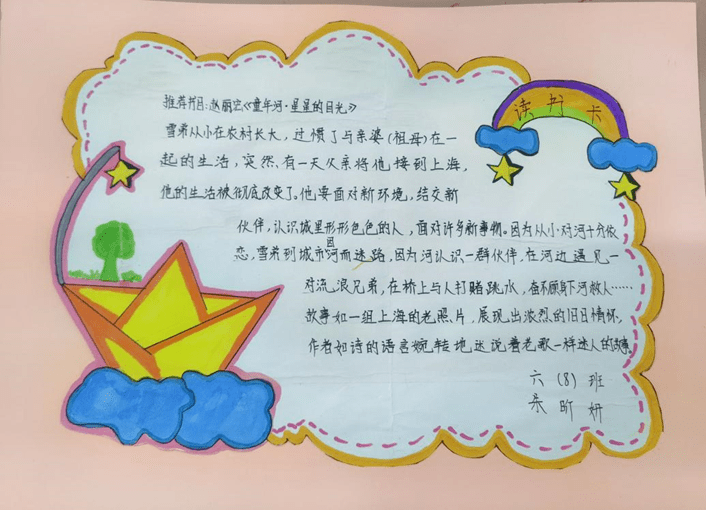 读书卡
推荐书目:赵丽宏《童年河·星星的目光》
雪弟从小在农村长大,过惯了与亲婆(祖母)在一
起的生活,突然有一天父亲将他接到上海,
他的生活被彻底改变了。他要面对新环境,结交新
伙伴,认识城里形形色色的人,面对许多新事物。因为从小对河十分依
恋,雪弟到城市因河而迷路,因为河认识一群伙伴,在河边遇见一
对流浪兄弟,在桥上与人打赌跳水,奋不顾身下河救人……
故事如一组上海的老照片,展现出浓烈的旧日情怀,
作者如诗的语言婉转地述说着老歌一样迷人的故事。
六(8)班
昕妍